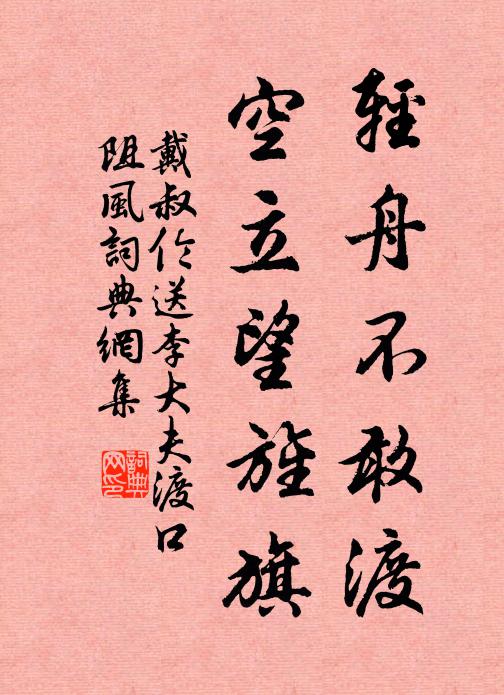 輕舟不敢渡
空立望旌旗
戴叔伦送李大夫渡口
阻風詞典網集
詞典网印